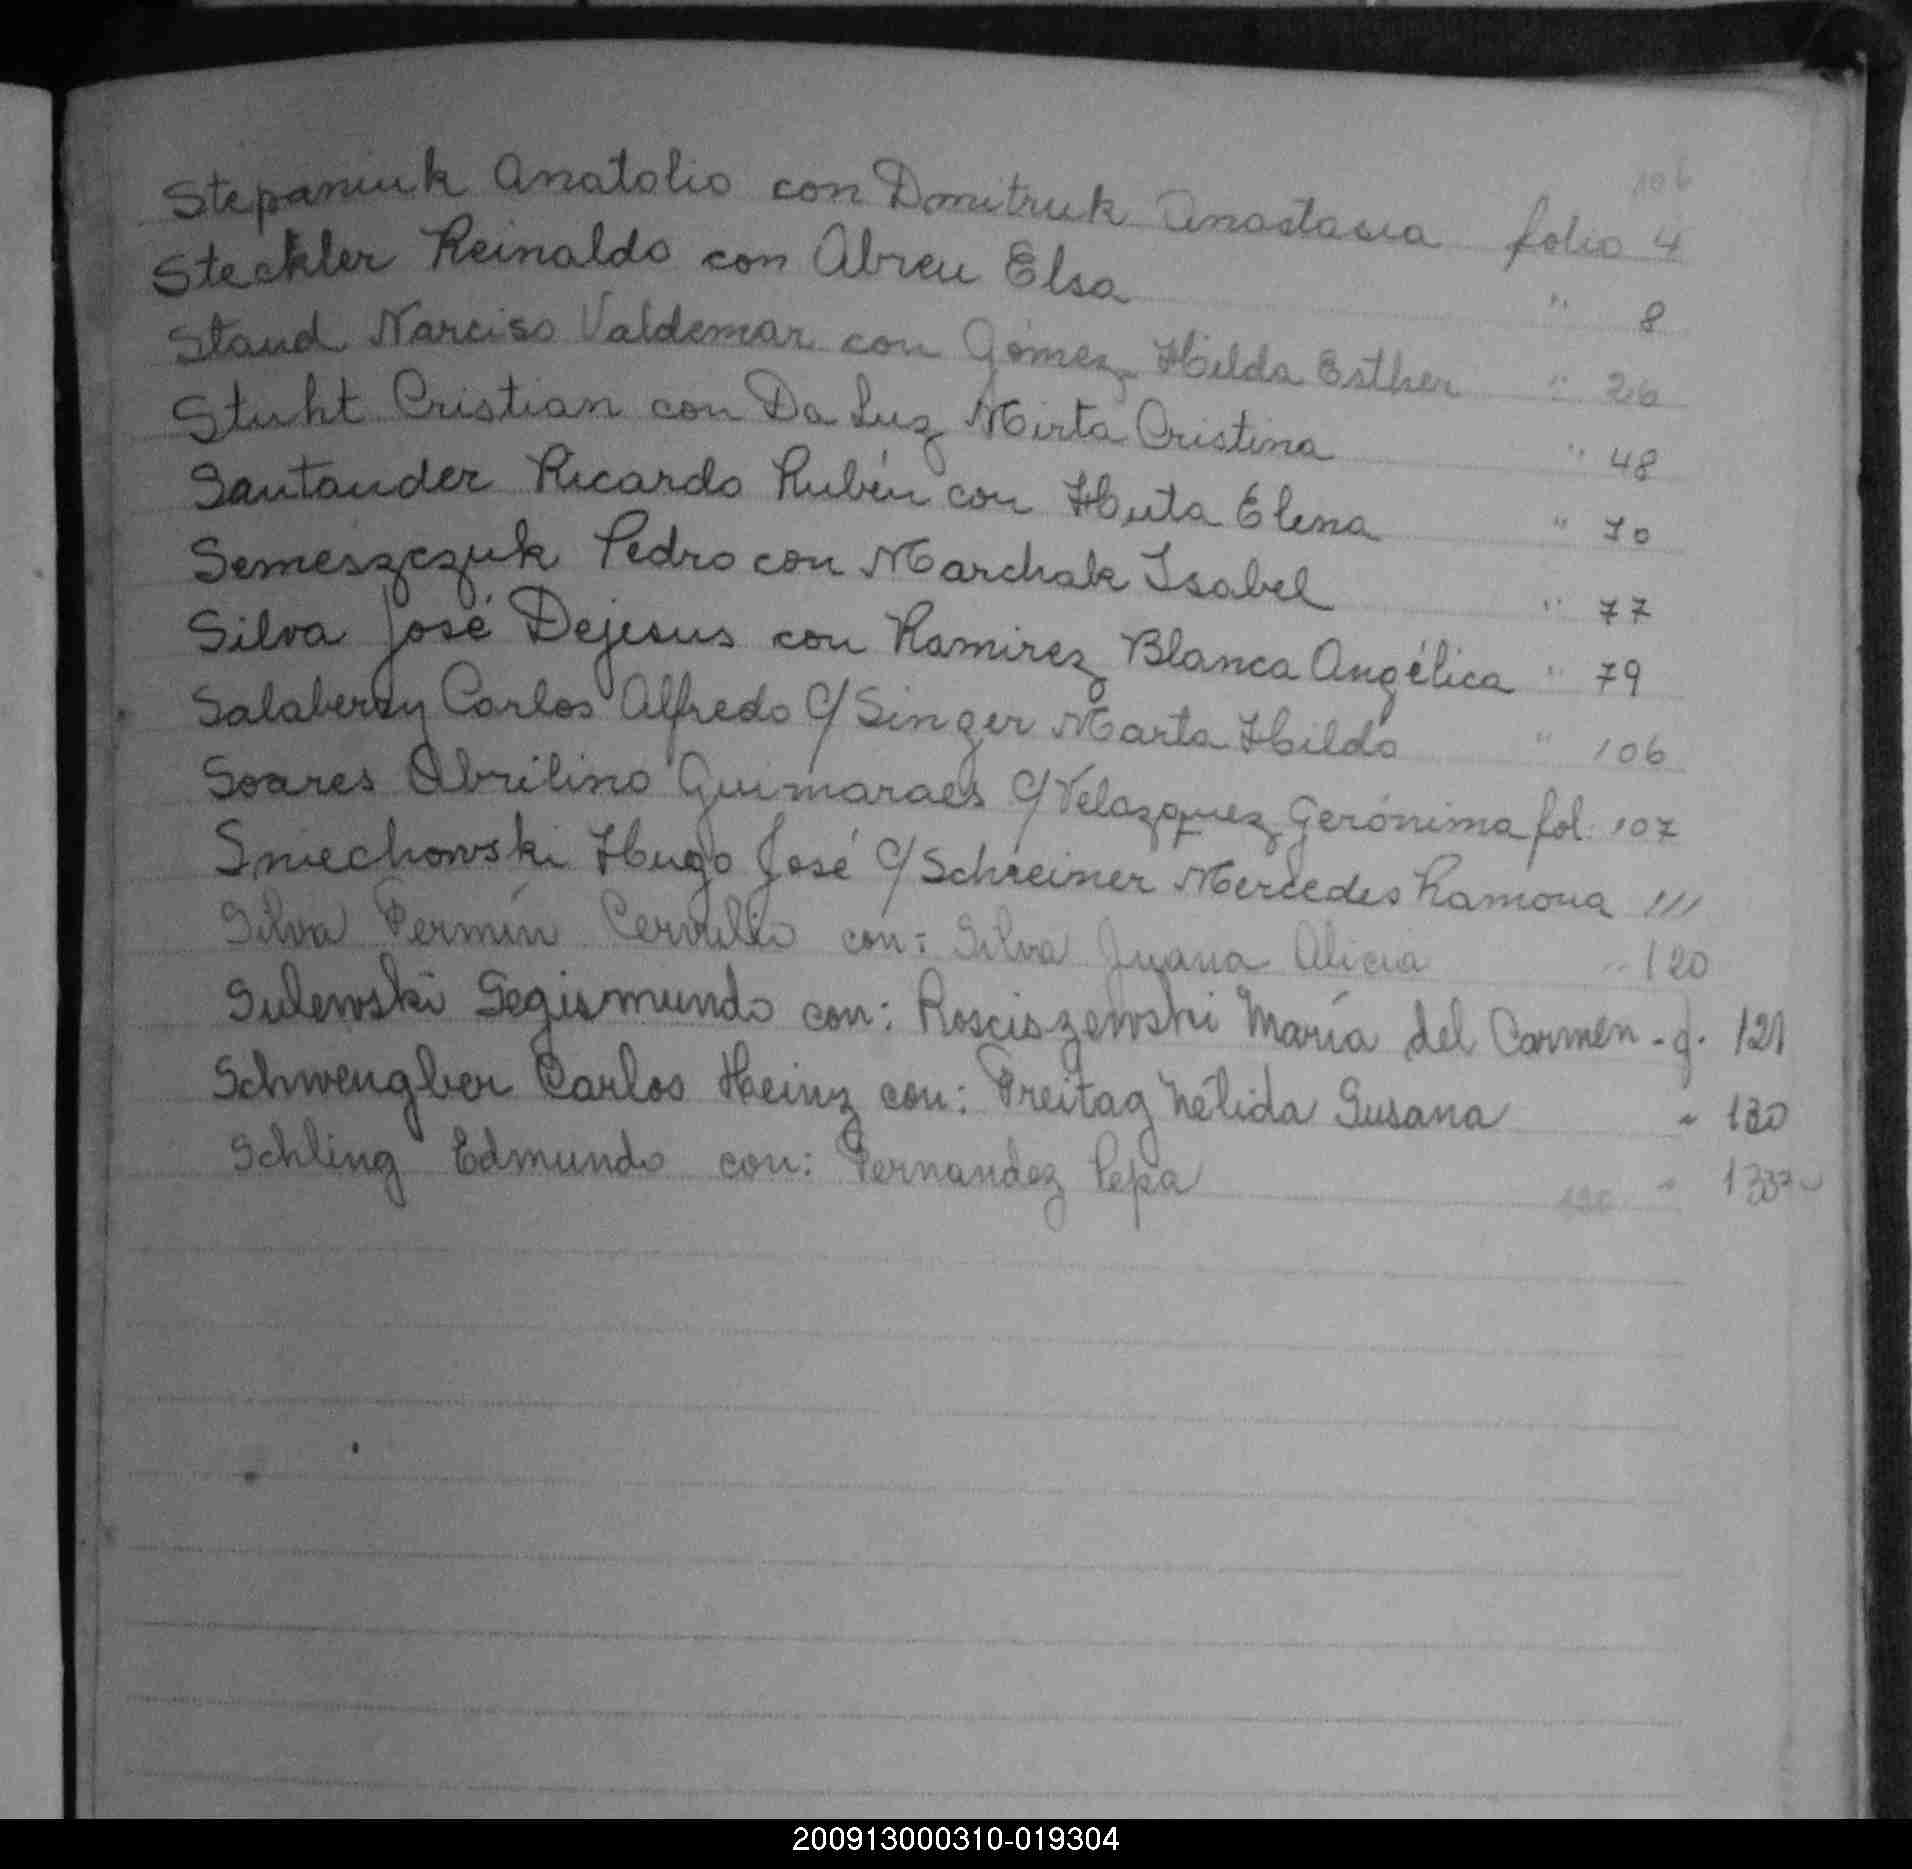 106
Stepaniuk Anatolio con Dmitruk Anastasia folio 4
Steckler Reinaldo con Abreu Elsa " 8
Staud Narciso Valdemar con Gómez Hilda Esther " 26
Stuht Cristian con Da Luz Mirta Cristina " 48
Santander Ricardo Rubén con Huta Elena " 70
Semeszczuk Pedro con Marchak Isabel " 77
Silva José Dejesus con Ramirez Blanca Angélica " 79
Salaberry Carlos Alfredo c/ Singer Marta Hilda " 106
Soares Abrilino Guimaraes c/ Velazquez Gerónima fol. 107
Sniechowski Hugo José c/ Schreiner Mercedes Ramona 111
Silva Fermín Cervulio con: Silva Juana Alicia " 120
Sulewski Segismundo con: Rosciszewski María del Carmen - f. 121
Schwengber Carlos Heinz con: Freitag Nélida Susana " 130
Schling Edmundo con: Fernandez Pepa "
200913000310-019304